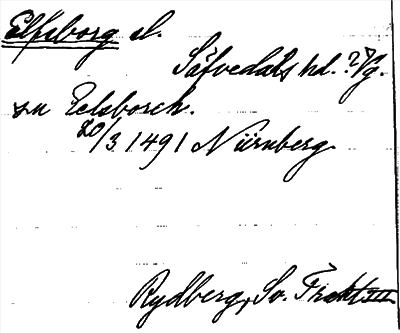 Elfsborg sl.
Säfvedals hd. ? Vg.
zu Eelsborch.
20/3 1491 Nürnberg
Rydberg, Sv. Trakt III